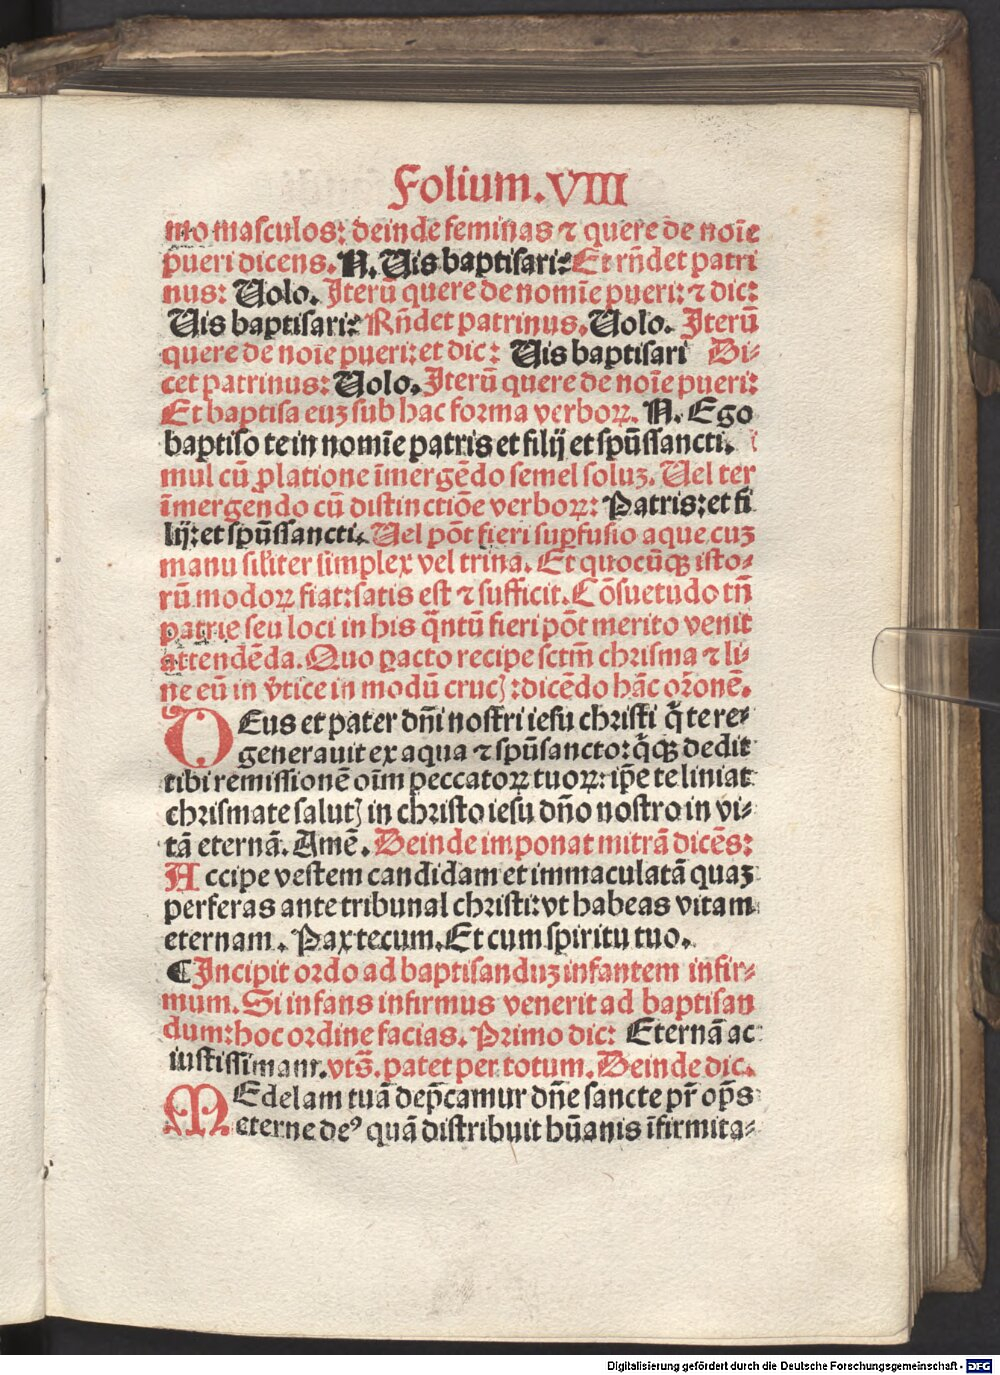 Folium.VIII
mo masculos: deinde feminas ⁊ quere de noīe
pueri dicens. N. Uis baptisari: Et rn̄det patri
nus: Uolo. Iterū quere de nomīe pueri: ⁊ dic:
Uis baptisari: Rn̄det patrinus. Uolo. Iterū
quere de noīe pueri: et dic: Uis baptisari Di⸗
cet patrinus: Uolo. Iterū quere de noīe pueri:
Et baptisa euꝫ sub hac forma verboꝝ. N. Ego
baptiso te in nomīe patris et filij et spūssancti. i
mul cū ꝓlatione īmergēdo semel soluꝫ. Uel ter
īmergendo cū distinctiōe verboꝝ: Patris: et fi
lij: et spūssancti. Uel pōt fieri suꝑfusio aque cuꝫ
manu siliter simplex vel trina. Et quocūqꝫ isto⸗
rū modoꝝ fiat: satis est ⁊ sufficit. Cōsuetudo tn̄
patrie seu loci in his q̄ntū fieri pōt merito venit
attendēda. Quo ꝑacto recipe sctm̄ chrisma ⁊ li⸗
ne eū in v̄tice in modū crucꝭ: dicēdo hāc or̄onē.
DEus et pater dn̄i nostri iesu christi q̄ te re⸗
generauit ex aqua ⁊ spūsancto: q̄qꝫ dedit
tibi remissionē oīm peccatoꝝ tuoꝝ: ip̄e te liniat
chrismate salutꝭ in christo iesu dn̄o nostro in vi⸗
tā eternā. Amē. Deinde imponat mitrā dicēs:
Accipe vestem candidam et immaculatā quaꝫ
perferas ante tribunal christi: vt habeas vitam
eternam. Pax tecum. Et cum spiritu tuo.
¶ Incipit ordo ad baptisanduꝫ infantem infir⸗
mum. Si infans infirmus venerit ad baptisan
dum: hoc ordine facias. Primo dic: Eternā ac
iustissimam. vts̄. patet per totum. Deinde dic.
MEdelam tuā dep̄camur dn̄e sancte pr̄ op̄s
eterne deꝰ quā distribuit hūanis īfirmita⸗
Digitalisierung gefördert durch die Deutsche Forschungsgemeinschaft - DFG